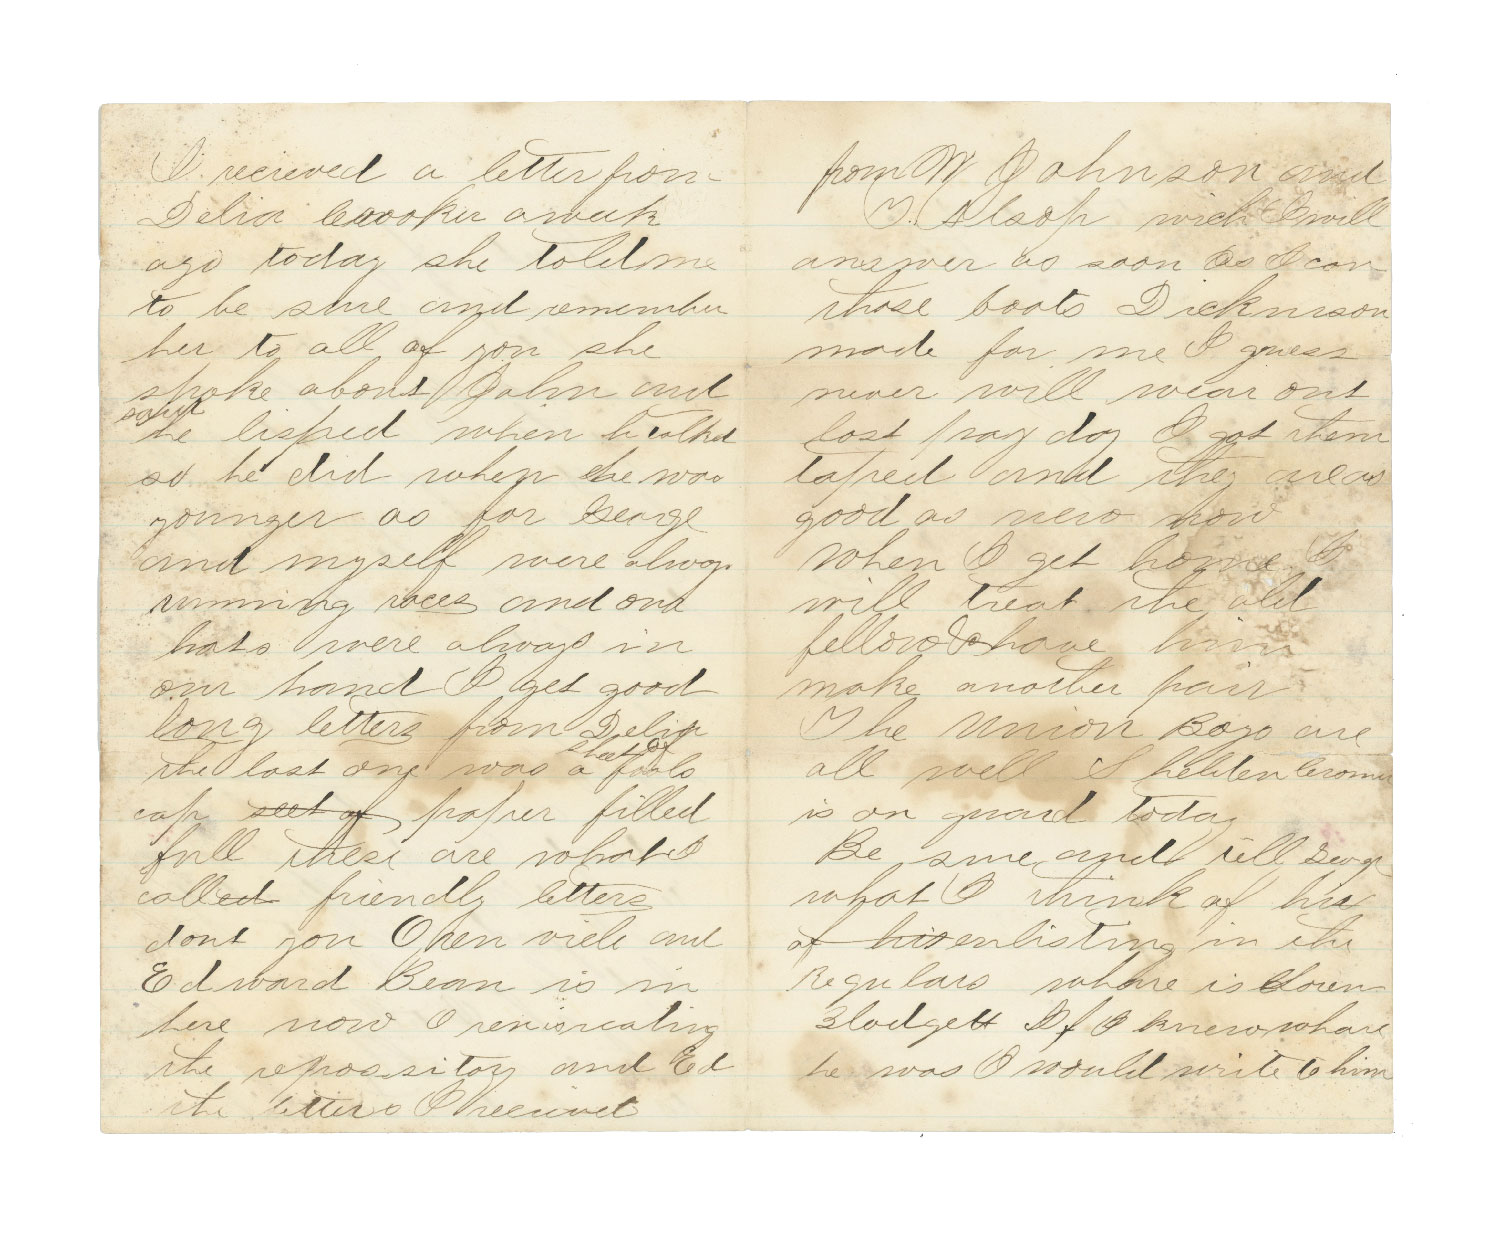 I recieved a letter from
Delia Crooker a week
ago today she told me
to be sure and remember
her to all of you she
spoke about John and
said he lisped when he talked
so he did when he was
younger as for George
and myself were always
running races and our
hats were always in
our hand I get good
long letters from Delia
the last one was a sheet of fools
cap seet of paper filled
full these are what I
called friendly letters
dont you Oren and
Edward Bean is in
here now Oren is reading
the repository and Ed
the letters I recieved
from W Johnson and
T. Alsop wich I will
answer as soon as I can
those boots Dickinson
made for me I guess
never will wear out
last pay day I got them
taped and they are as
good as new now
when I get home I
will treat the old
fellow & have him
make another pair
The Union Boys are
all well Shelden
is on guard today
Be sure and tell George
what I think of his
of his enlisting in the
Regulars whare is
Blodgett If I knew whare
he was I would write to him